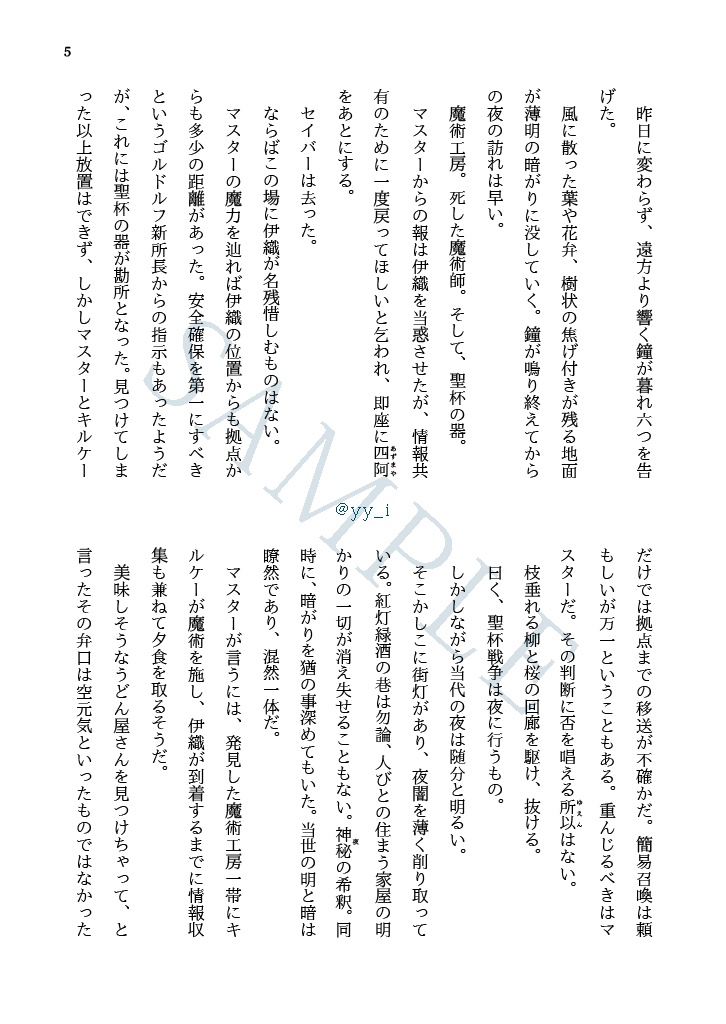 5
昨日に変わらず、遠方より響く鐘が暮れ六つを告
げた。
風に散った葉や花弁、樹状の焦げ付きが残る地面
が薄明の暗がりに没していく。鐘が鳴り終えてから
の夜の訪れは早い。
魔術工房。死した魔術師。そして、聖杯の器。
マスターからの報は伊織を当惑させたが、情報共
有のために一度戻ってほしいと乞われ、即座に四阿
あずまや
をあとにする。
セイバーは去った。
ならばこの場に伊織が名残惜しむものはない。
マスターの魔力を辿れば伊織の位置からも拠点か
らも多少の距離があった。安全確保を第一にすべき
というゴルドルフ新所長からの指示もあったようだ
が、これには聖杯の器が勘所となった。見つけてしま
った以上放置はできず、しかしマスターとキルケー
だけでは拠点までの移送が不確かだ。簡易召喚は頼
もしいが万一ということもある。重んじるべきはマ
スターだ。その判断に否を唱える所以はない。
ゆえん
枝垂れる柳と桜の回廊を駆け、抜ける。
曰く、聖杯戦争は夜に行うもの。
しかしながら当代の夜は随分と明るい。
そこかしこに街灯があり、夜闇を薄く削り取って
いる。紅灯緑酒の巷は勿論、人びとの住まう家屋の明
かりの一切が消え失せることもない。神秘の希釈。同
夜
時に、暗がりを猶の事深めてもいた。当世の明と暗は
瞭然であり、混然一体だ。
マスターが言うには、発見した魔術工房一帯にキ
ルケーが魔術を施し、伊織が到着するまでに情報収
集も兼ねて夕食を取るそうだ。
美味しそうなうどん屋さんを見つけちゃって、と
言ったその弁口は空元気といったものではなかった
SAMPLE
@yy_i